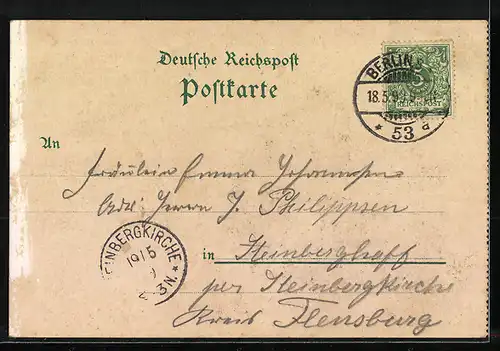 Deutsche Reichspost
Postkarte
BERLIN
18.5.9
REICHSPOST
* 53
An
Fräulein Emma Johannsen
Adr: Herrn J. Philippsen
in Steinberghaff
per Steinbergkirche
Kreis Flensburg
EINBERGKIRCHE *
19/5
3N.